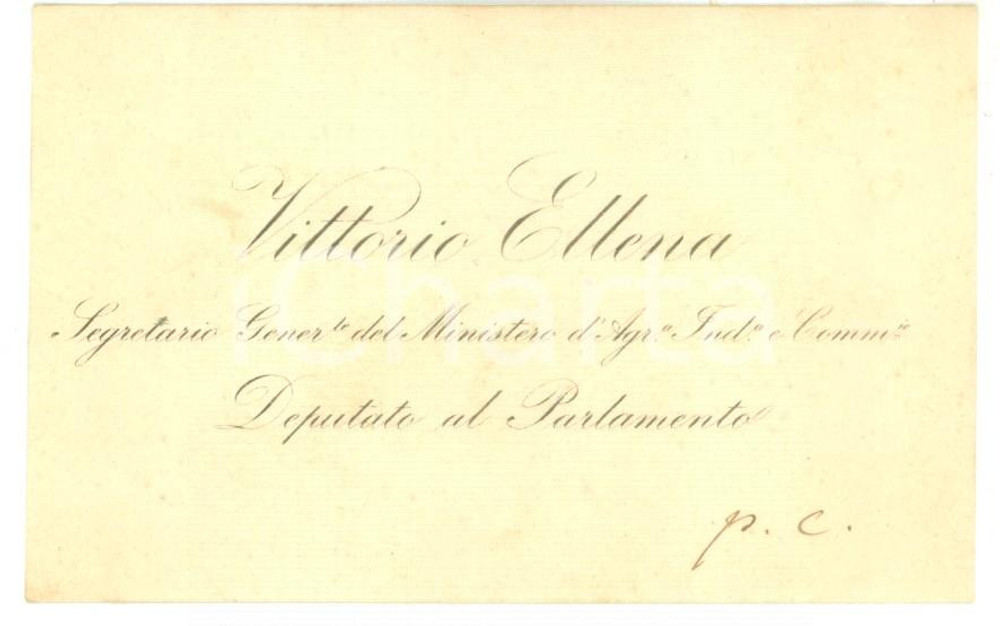 Vittorio Ellena
Segretario Gener.le del Ministero d'Agr.a Ind.a e Comm.io
Deputato al Parlamento
p. c.
iCharta